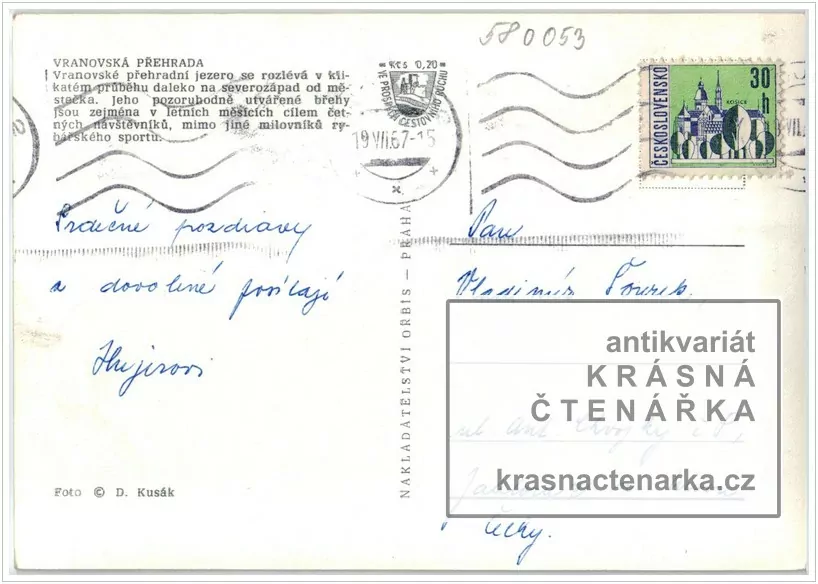 580053
VRANOVSKÁ PŘEHRADA
Vranovské přehradní jezero se rozlévá v kli-
katém průběhu daleko na severozápad od mě-
stečka. Jeho pozoruhodně utvářené břehy
jsou zejména v letních měsících cílem čet-
ných návštěvníků, mimo jiné milovníků ry-
bářského sportu.
Kčs 0,20
VE PROSPĚCH CESTOVNÍHO RUCHU
19.VII.67-15
ČESKOSLOVENSKO
30 h
KOŠICE
Srdečné pozdravy
z dovolené posílají
Hujerovi
NAKLADATELSTVÍ ORBIS — PRAHA
Pan
Vladimír
antikvariát
KRÁSNÁ
ČTENÁŘKA
ul. Ant.
krasnactenarka.cz
Čechy.
Foto © D. Kusák